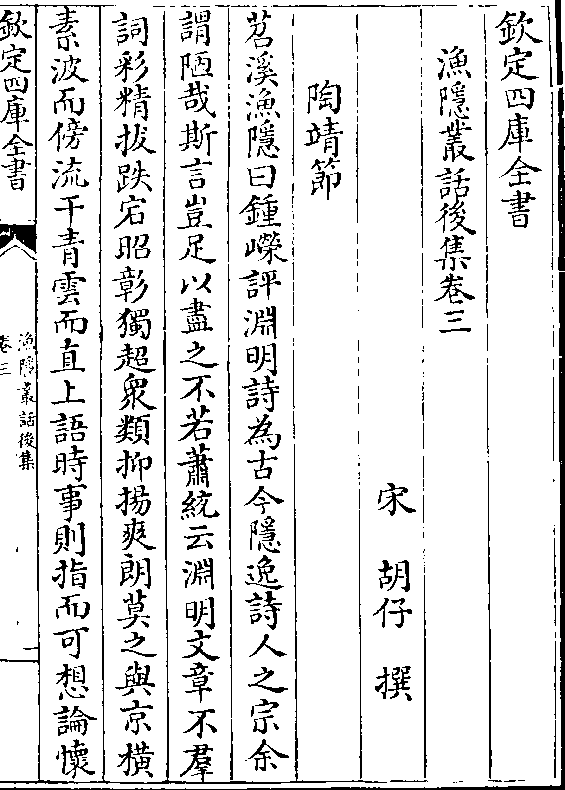 欽定四庫全書
漁隱叢話後集卷三
宋 胡仔 撰
陶靖節
苕溪漁隱曰鍾嶸評淵明詩為古今隱逸詩人之宗余
謂陋哉斯言豈足以盡之不若蕭統云淵明文章不羣
詞彩精拔跌宕昭彰獨超衆類抑揚爽朗莫之與京橫
素波而傍流干青雲而直上語時事則指而可想論懷
欽定四庫全書
漁隱叢話後集
卷三
一